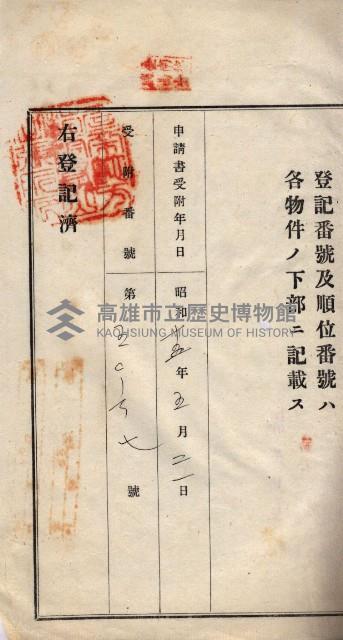 登記番號及順位番號ハ
各物件ノ下部ニ記載ス
申請書受附年月日 昭和 年五月二一日
受附番號 第五〇 七號
右登記濟
高雄市立歷史博物館
KAOHSIUNG MUSEUM OF HISTORY